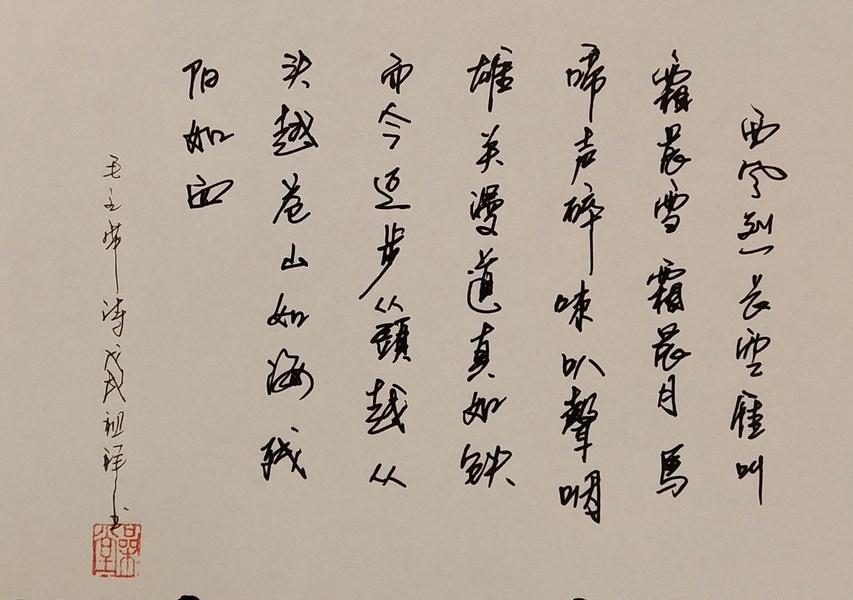 西风烈长空雁叫
霜晨雪霜晨月馬
啼声碎喇叭聲咽
雄关漫道真如铁
而今迈步从頭越从
头越苍山如海残
阳如血
毛主席诗戊戌祖祥书